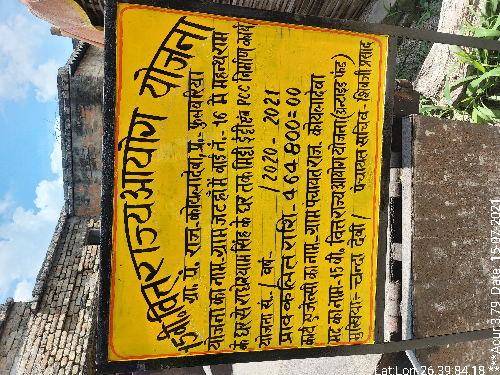 15वीं० वित्त राज्य आयोग योजना
ग्रा. पं. राज. कोयलादेवा, प्र०- फुलवरिया
योजना का नाम- ग्राम जटहाँ में वार्ड नं.- 16 में महन्थ राम
के घर से राधेश्याम सिंह के घर तक मिट्टी ईंटीकरण PCC निर्माण कार्य
योजना सं. / वर्ष- / 2020 - 2021
प्राक्कलित राशि - 464800=00
कार्य एजेन्सी का नाम- ग्राम पंचायत राज. कोयलादेवा
मद का नाम- 15 वीं. वित्त राज्य आयोग योजना (अनटाइड फंड)
मुखिया:- चन्दा देवी / पंचायत सचिव - शिवजी प्रसाद
Lat Lon 26.39,84.18
15/07/2021